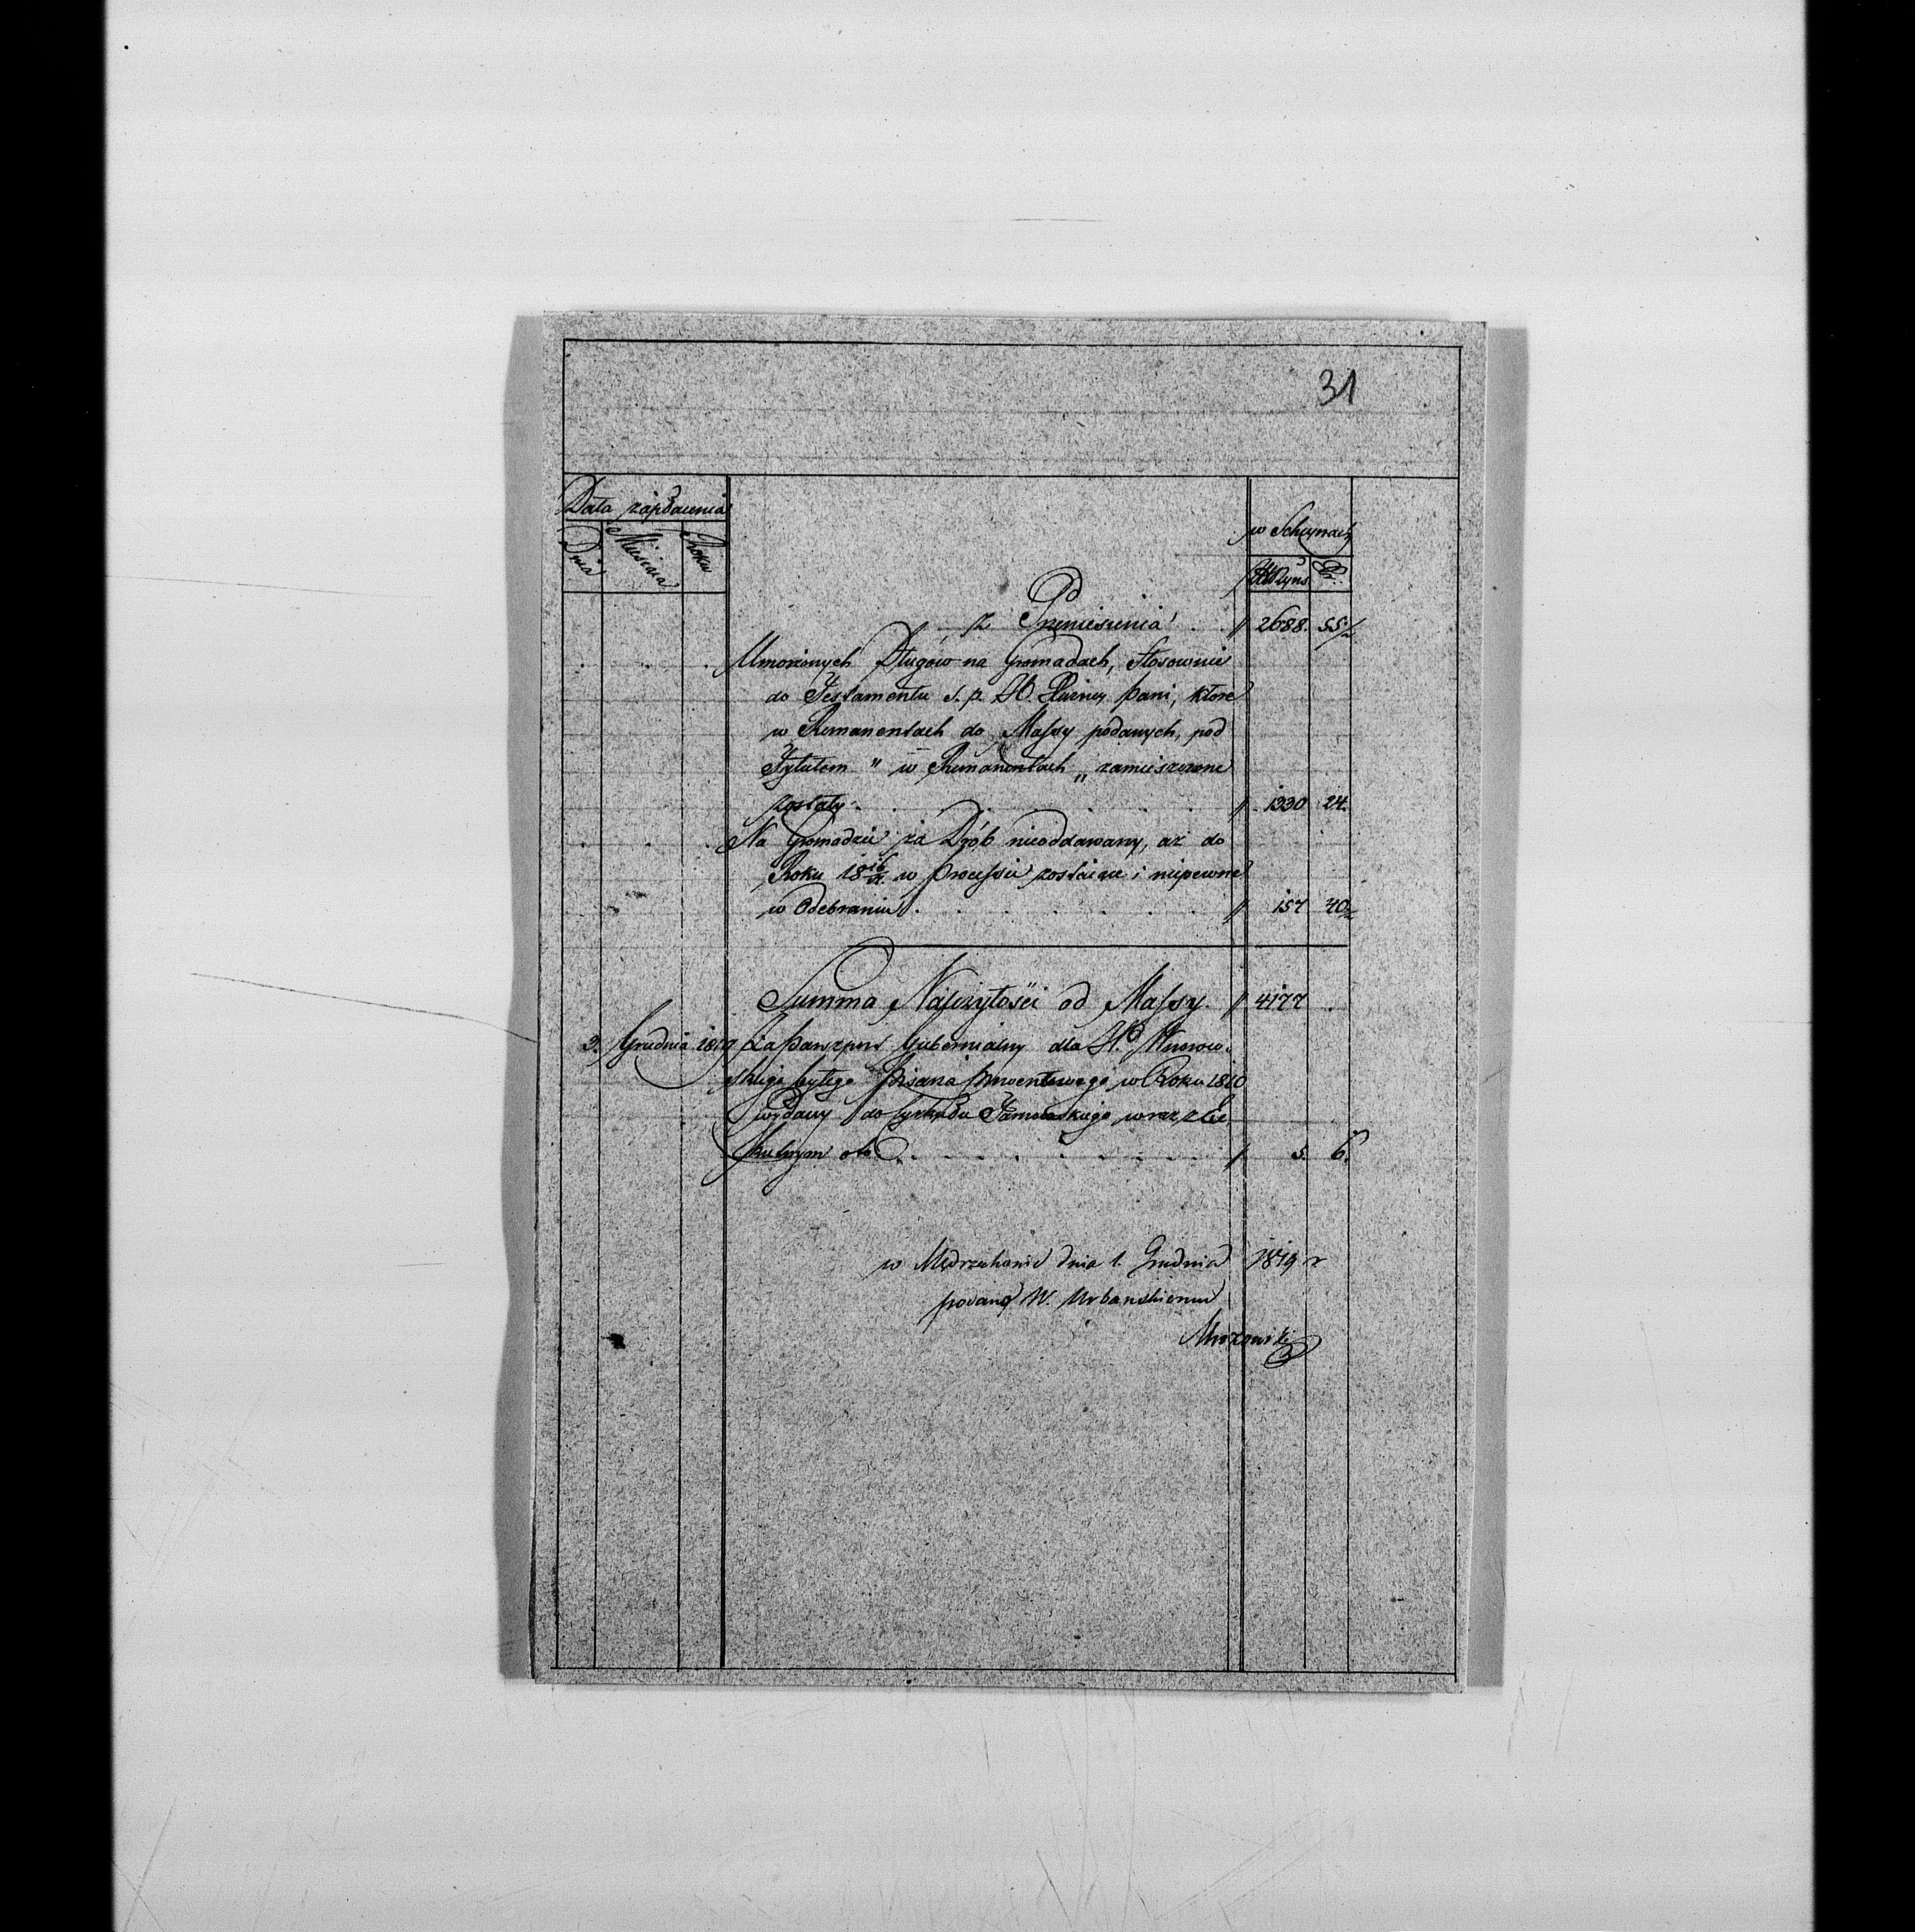 31
Data zapłacenia
w Scheynach
Dnia Miesiąca Roku Ryns. Xr.
z Przeniesienia 2688. 55 1/2
Umorzonych Długów na Gromadach, stosownie
do Testamentu ś. p. JW. Pani, które
w Remanentach do Massy podanych, pod
Tytułem „ w Remanentach „ zamieszczone
zostały 1330 24.
Na Gromadzie za Drób nieoddawany, aż do
Roku 18 16/17 w Processie zostające i niepewne
w Odebraniu 157 40 2/4
Summa Należytości od Massy. 4177 .
3. Grudnia 1819 Za Paszport Gubernialny dla W.
skiego byłego Pisarza prowentowego w Roku 1810
wydany do Cyrkułu Tarnowskiego wraz z Cir
kularnym oto 5. 6.
w Mędrzechowie dnia 1. Grudnia 1819 r
podano W. Urbanskiemu
Mrozowski